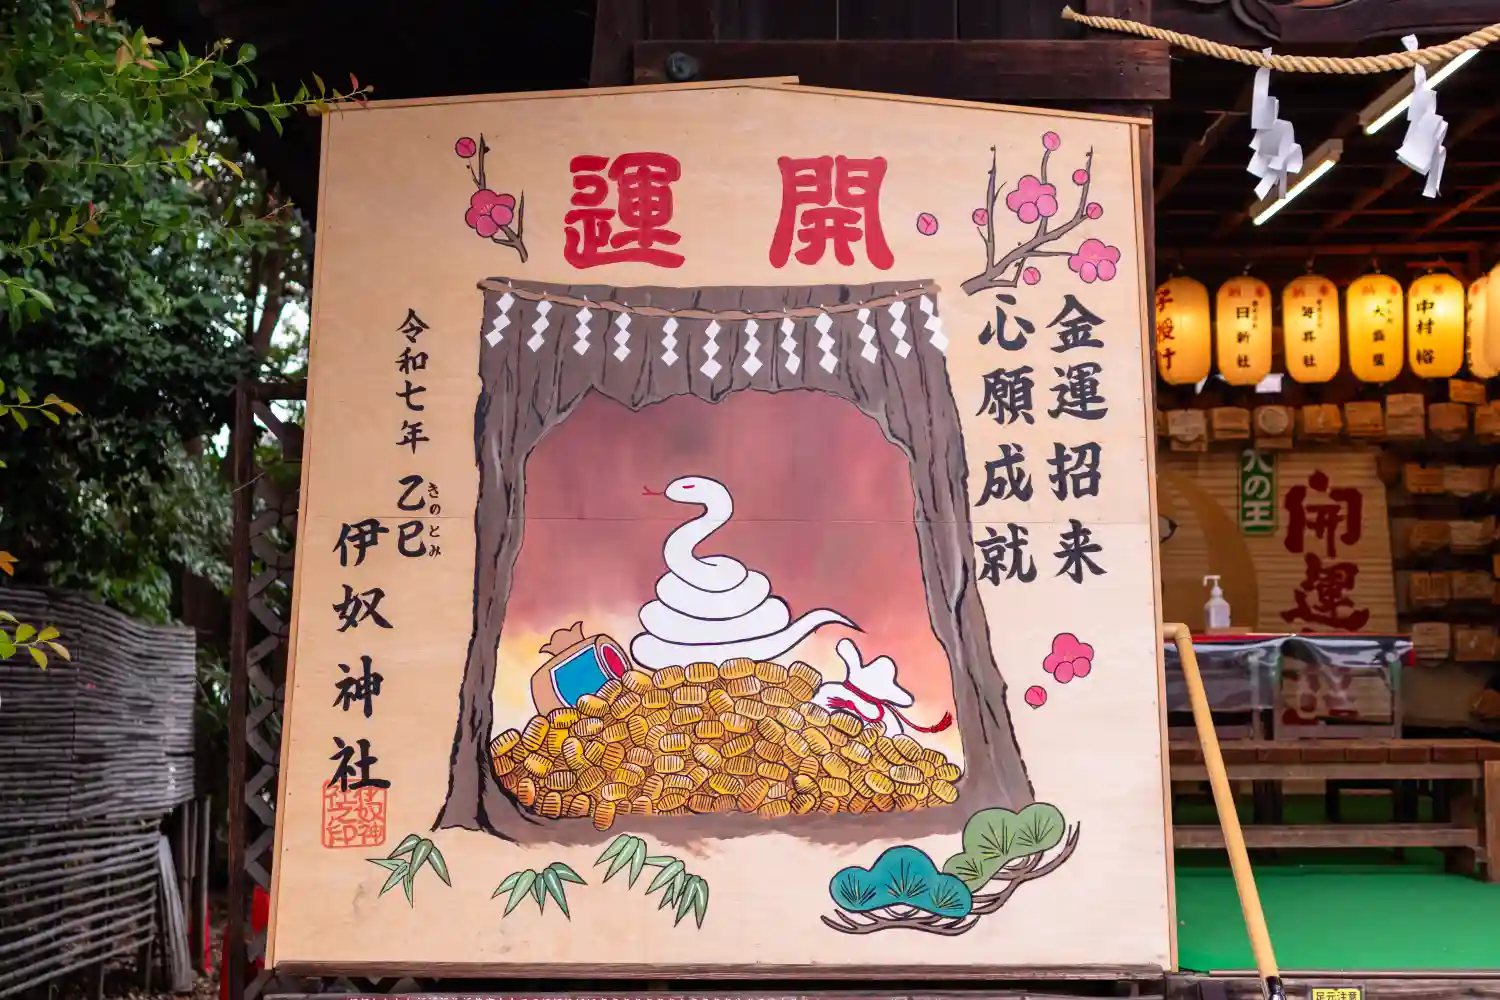 開運
金運招来
心願成就
令和七年 乙巳
きのとみ
伊奴神社
伊奴神
社之印
子授け
日新社
毎昇社
大藤屋
中村裕
犬の王
開運
足元注意